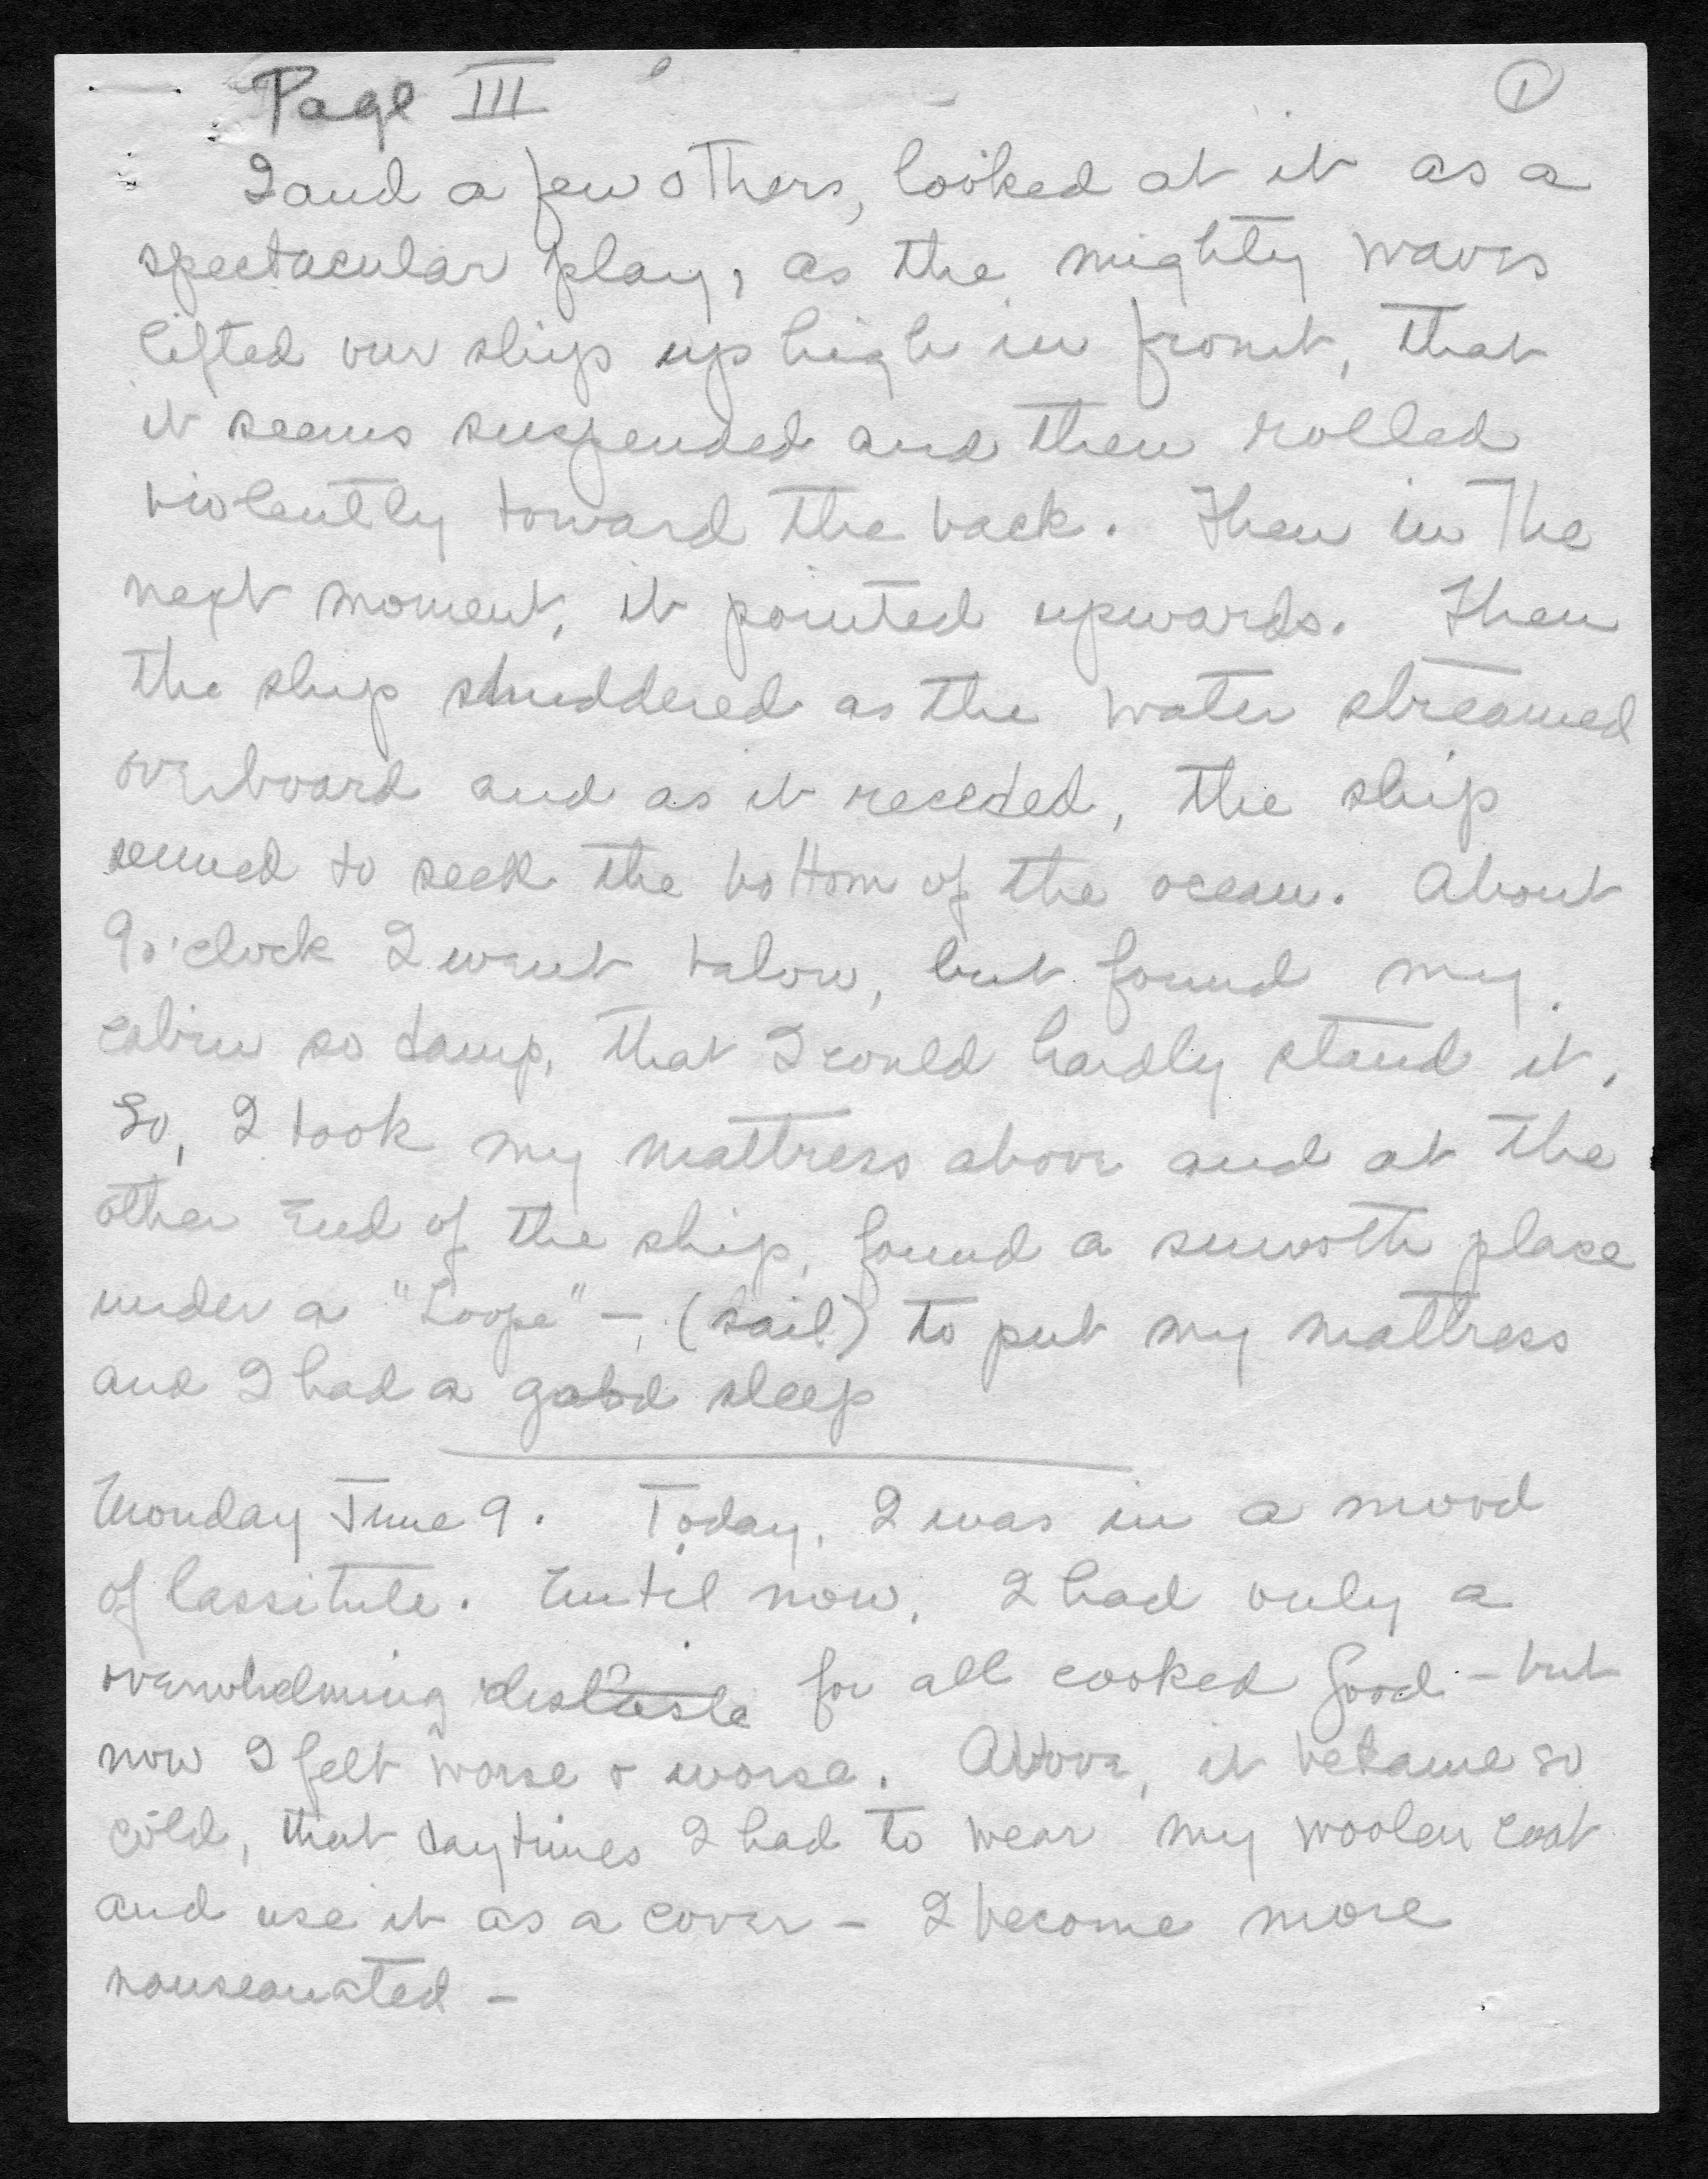 Page III
1
I and a few others, looked at it as a
spectacular play, as the mighty waves
lifted our ship up high in front, that
it seems suspended and then rolled
violently toward the back. Then in the
next moment, it pointed upwards. Then
the ship shuddered as the water streamed
overboard and as it receded, the ship
seemed to seek the bottom of the ocean. About
9 o'clock I went below, but found my
cabin so damp, that I could hardly stand it.
So, I took my mattress above and at the
other end of the ship, found a smooth place
under a "Loope" - (sail) to put my mattress
and I had a good sleep
Monday June 9. Today, I was in a mood
of lassitute. Until now, I had only a
overwhelming distaste for all cooked food - but
now I felt worse & worse. Above, it became so
cold, that daytimes I had to wear my woolen coat
and use it as a cover - I become more
nauseauated -